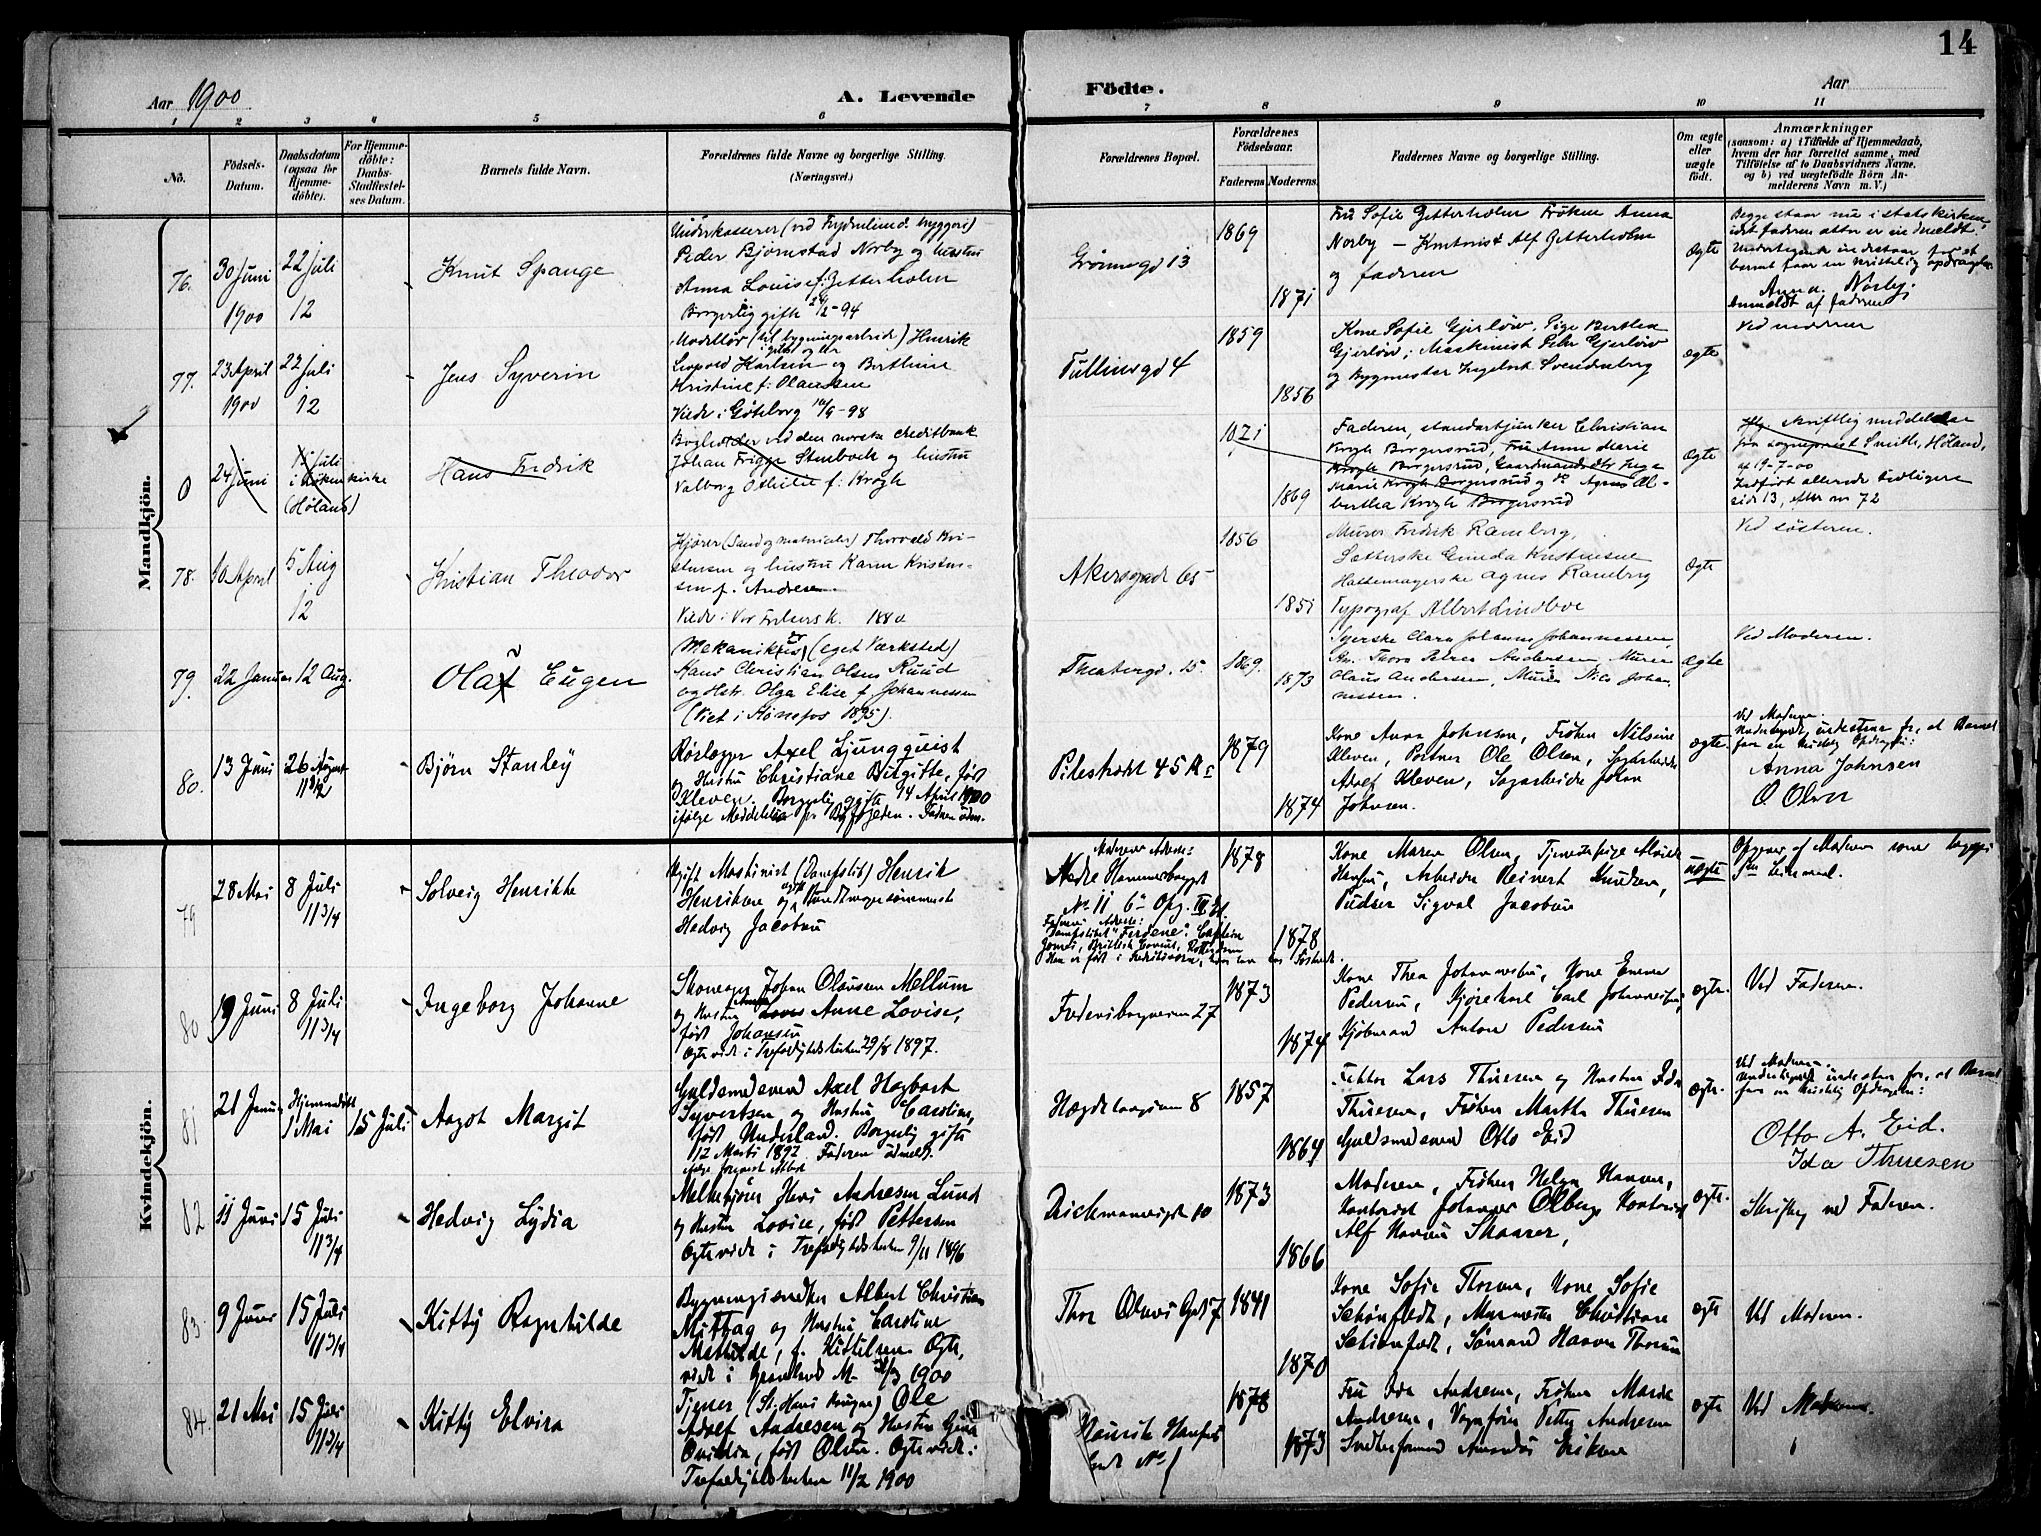 14
Aar 1900
A. Levende
Födte.
Aar
1 2 3 4 5 6 7 8 9 10 11
No.
Födsels-Datum.
Daabsdatum (ogsaa for Hjemmedöbte).
For Hjemmedöbte: Daabs-Stadfæstelses Datum.
Barnets fulde Navn.
Forældrenes fulde Navne og borgerlige Stilling.
(Næringsvei.)
Forældrenes Bopæl.
Forældrenes Födselsaar.
Faderens. Moderens.
Faddernes Navne og borgerlige Stilling.
Om ægte eller uægte födt.
Anmærkninger
(saasom: a) i Tilfælde af Hjemmedaab,
hvem der har forrettet samme, med
Tilföielse af to Daabsvidners Navne,
og b) ved uægtefödte Börn An-
melderens Navn m. V.)
Mandkjön.
76.
30 Juni 1900
22 Juli 12
Knut Spange
Underkasserer (ved Frydenlunds bryggeri)
Peder Bjørnstad Norby og hustru
Anna Louise f: Zetterholm
Borgerlig gifte 94
Grønnegd 13
1869
1871
Fru Sofie Zetterholm Frøken Anna
Norby — Kontorist Alf Zetterholm
og faderen
Ægte
Begge staar nu i statskirken
idet faderen atter er indmeldt.
Undertegnede indestaar for at
barnet faar en kristelig opdragelse
Anna Norby.
Anmeldt af faderen
77.
23 April 1900
22 Juli 12
Jens Syverin
Modellør (til bygningsarbeide) Henrik
Leopold og Berthine
Kristine f: Olaussen
Viede i Gøteborg 10/9 - 98
Tullinsgd 4
1859
1856
Kone Sofie Gjerløw, Pige Berthea
Gjerløw, Maskinist Peder Gjerløw
og Bygmester Ingebrt Svendenborg
ægte
Ved moderen
0
24 Juni
15 Juli
i Løken kirke
(Høland)
Hans Fredrik
Bogholder ved den norske Creditbank
Johan Frigge Stenbock og hustru
Valborg Othilie f: Krogh
1871
1869
Faderen, standartjunker Christian
Krogh Borgersrud, Fru Anne Marie
Krogh Borgersrud, Gaardmandsdtr Inga
Marie Krogh Borgersrud og do Agnes Al-
bertha Krogh Borgersrud
Ægte
Iflg skriftlig meddelelse
fra sogneprest Smith, Høland,
af 19-7-00
Indført allerede tidligere
side 13, efter nr 72
78.
10 April
5 Aug 12
Kristian Theodor
Kjører (Sand og materialer) Thorvald Kri-
stensen og hustru Karen Kristen-
sen f. Andersen
Viede i Vor Frelsers k. 1880
Akersgade 65
1856
1851
Murer Fredrik Ramberg,
Sætterske Gunda Kristensen
Hattemagerske Agnes Ramberg
Typograf Albert Lindboe
Ægte
Ved søsteren.
79.
22 Januar
12 Aug.
Olaf Eugen
Mekaniker (eget Værksted)
Hans Christian Olsen Ruud
og Hstr. Olga Elise f. Johannessen
(Viet i Hønefos 1895).
Theatergd. 15
1869.
1873
Syerske Clara Johanne Johannessen,
Fru. Thora Petrea Andersen, Murer
Olaus Andersen, Murer Nils Johan-
nessen.
Ægte
Ved Moderen.
80.
13 Juni
26 August 11 1/2
Bjørn Stanley
Rørlægger Axel Ljungquist
og Hustru Christiane Birgitte, født
Kleven. Borgerlig gifte 14 April 1900
ifølge Meddelelse fr Byfogden. Faderen udm.
Pilestrædet 45
1879
1874
Kone Anna Johnsen, Frøken Nilsine
Kleven, Portner Ole Olsen, Sagarbeider
Adolf Kleven, Sagarbeider Johan
Johnsen.
ægte.
Ved Moderen.
Undertegnede indestaar for, at Barnet
faar en kristelig Opdragelse:
Anna Johnsen
O Olsen
Kvindekjön.
79
28 Mai
8 Juli 11 3/4
Solveig Henrikke
Ugift Maskinist (Dampskib) Henrik
Henriksen og
Hedvig Jacobsen
Moderens Adresse:
Nedre Hammersborggt
No 11 6te Opg. III Et.
Faderens Adresse:
1878
1878
Kone Maren Olsen, Tjenestepige Aloide
Hansen, Arbeider Reinert Knudsen,
Pudser Sigval Jacobsen
uægte
Opgives af Moderen som begges
80
19 Juni
8 Juli 11 3/4
Ingeborg Johanne
Skomager Johan Olaussen Mellum
og Hustru Anne Lovise,
født Johansen
Ægteviede i Trefoldighedskirken 29/8 1897.
Fredensborgveien 27
1873
1874
Kone Thea Johannesen, Kone Emma
Pedersen, Kjørekarl Carl Johannesen,
Kjøbmand Anton Pedersen
ægte.
Ved Faderen.
81
21 Januar
Hjemmedøbt 1 Mai
15 Juli
Aagot Margit
Guldsmedsvend Axel Hagbart
Syvertsen og Hustru Caroline,
født Underland. Borgerlig gifte
12 Marts 1892. Faderen udmeldt.
Hægdehaugsveien 8
1857
1864
Faktor Lars Thuesen og Hustru Ida
Thuesen, Frøken Martha Thuesen
Guldsmedsvend Otto Eid
ægte.
Ved Moderen.
Undertegnede indestaar for, at Barnet
faar en kristelig Opdragelse:
Otto A. Eid.
Ida Thuesen
82
11 Juni
15 Juli 11 3/4
Hedvig Lydia
Melkekjører Hans Andresen Lund
og Hustru Lovise, født Pettersen
Ægteviede i Trefoldighedskirken 9/11 1896
Deichmannsgt 10
1873
1866
Moderen, Frøken Helga Hansen,
Kontorist Johannes Olberg, Kontorist
Alf Hansen Skaarer,
ægte.
Skriftlig ved Faderen.
83.
9 Juni
15 Juli 11 3/4
Kitty Ragnhilde
Bygningssnedker Albert Christian
Mittag og Hustru Caroline
Mathilde, f. Kittelsen. Ægte-
viede i Grønland M. 1900
Thor Olsens Gade 7
1841
1870
Kone Sofie Thorsen, Kone Sofie
Schønfeldt, Murmester Christian
Schønfeldt, Sømand Haavr Thorsen
ægte
Ved Moderen.
84.
21 Mai
15 Juli 11 3/4
Kitty Elvira
Tjener (St. Hans haugen) Ole
Adolf Andresen og Hustru Gina
Ovidia, født Olsen. Ægteviede i
Trefoldighedskirken 11/2 1900
Mauritz Hansens
Gade No 1
1878
1873
Fru Ida Andresen, Frøken Marda
Andresen, Vognfører Petter Andresen
Snedkerformand Amandus Eriksen
ægte
Ved Moderen.